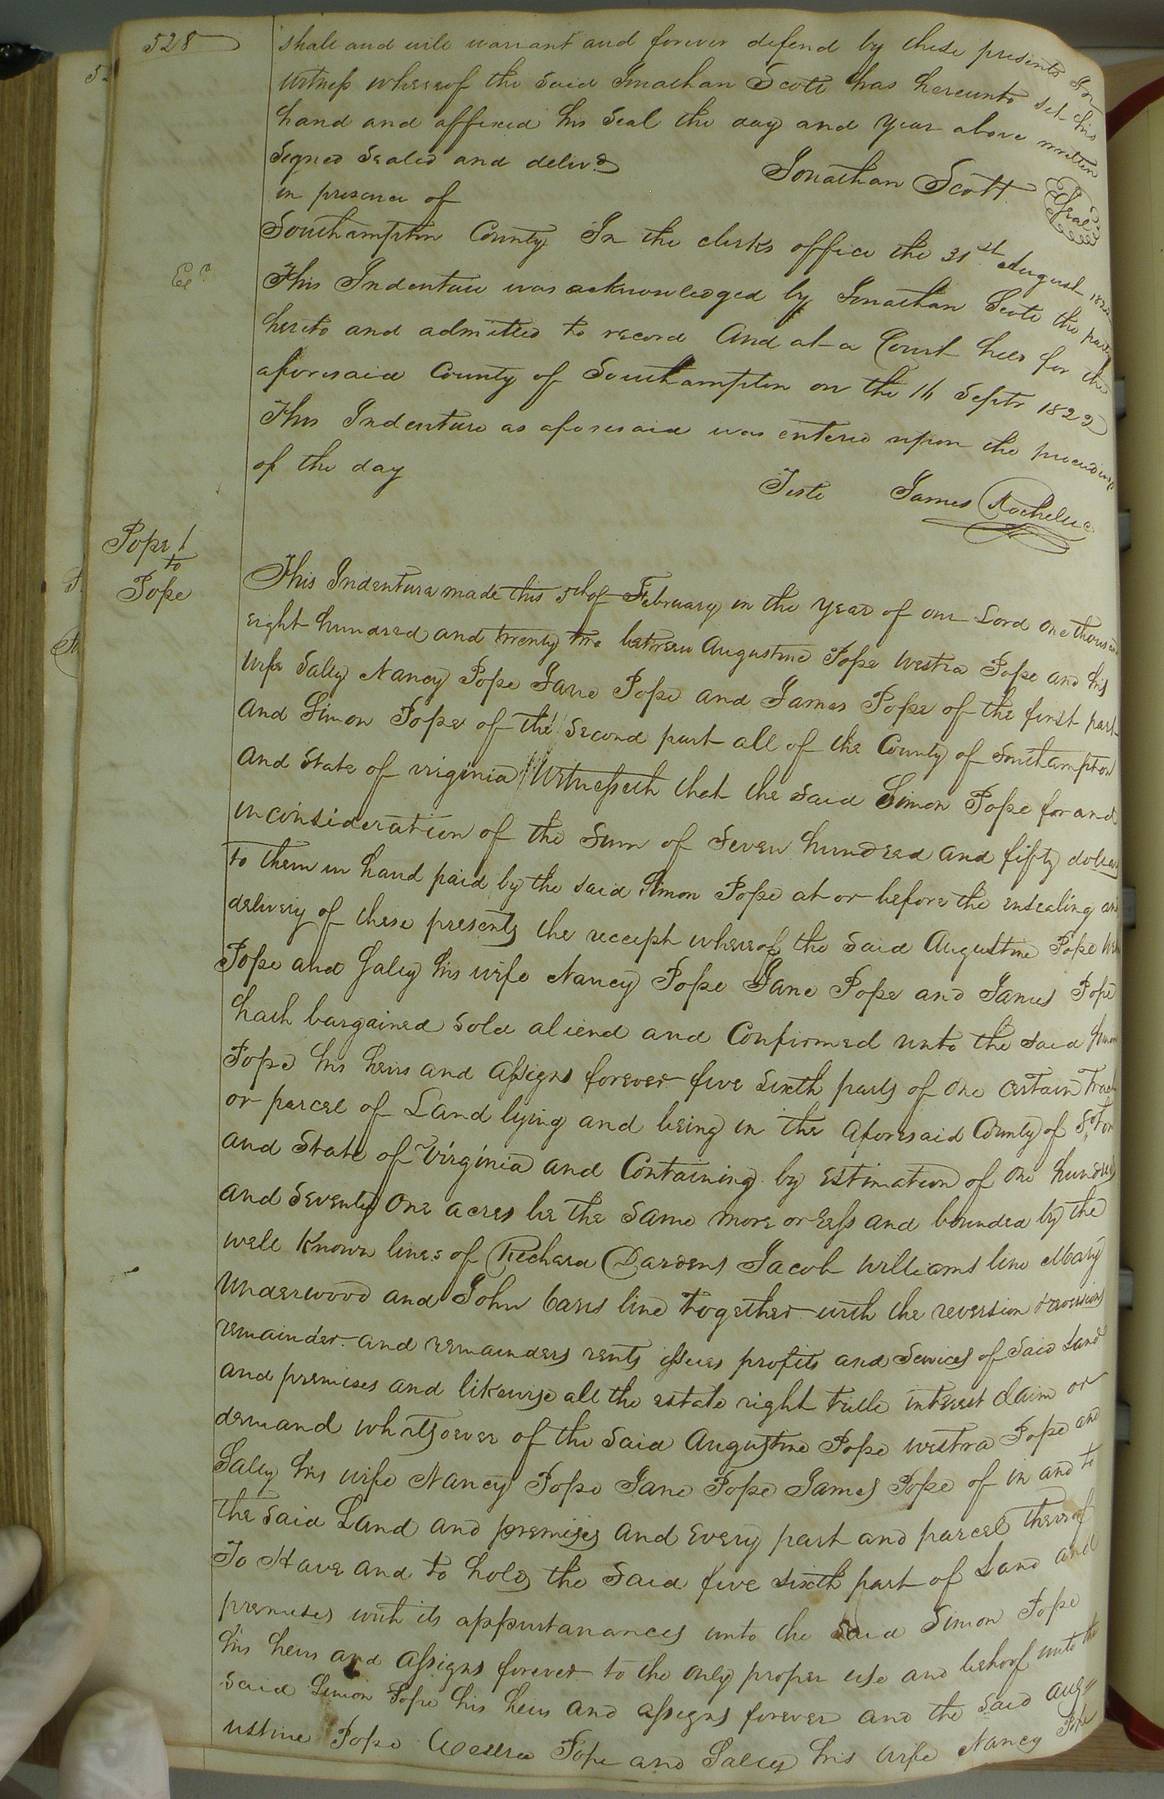 528
shall and will warrant and forever defend by these presents In
witness whereof the said Jonathan Scott has hereunto set his
hand and affixed his Seal the day and year above written
Signed Sealed and delivd
Jonathan Scott Seal
in presence of
Southampton County In the clerks office the 31st August 1822
Exd
This Indenture was acknowledged by Jonathan Scott the party
hereto and admitted to record And at a Court held for the
aforesaid County of Southampton on the 16 Septr 1822
This Indenture as aforesaid was entered upon the proceedings
of the day
Teste James Rochelle
Pope
to
Pope
This Indenture made this 5th of February in the year of our Lord one thousand
eight hundred and twenty two between Augustine Pope Westra Pope and his
wife Sally Nancy Pope Jane Pope and James Pope of the first part
and Simon Pope of the Second part all of the County of Southampton
and State of virginia Witnesseth that the said Simon Pope for and
in consideration of the Sum of Seven hundred and fifty dollars
to them in hand paid by the said Simon Pope at or before the ensealing and
delivery of these presents the receipt whereof the said Augustine Pope
Pope and Saley his wife Nancy Pope Jane Pope and James Pope
hath bargained sold aliend and Confirmed unto the said Simon
Pope his heirs and assigns forever five sixth parts of one certain Tract
or parcel of Land lying and being in the aforesaid County of
and State of Virginia and Containing by estimation of one hundred
and seventy one acres be the same more or less and bounded by the
well known lines of Richard Dardens Jacob Williams line Mary
Underwood and John line together with the reversion & reversions
remainder and remainders rents issues profits and Services of Said Land
and premises and likewise all the estate right title interest claim or
demand whatsoever of the said Augustine Pope Westra Pope and
Saley his wife Nancy Pope Jane Pope James Pope of in and to
the said Land and premises and every part and parcel thereof
To Have and to hold the said five sixth part of Land and
premises with its appurtanances unto the said Simon Pope
his heirs and assigns forever to the only proper use and behoof unto the
said Simon Pope his heirs and assigns forever and the said Aug
ustine Pope Westra Pope and Salley his wife Nancy Pope